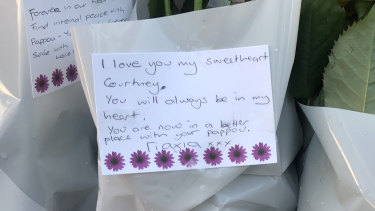 Forever in our hea
Find internal peace with
Pappou - Yo
Safe with
Love
I love you my sweetheart
Courtney.
You will always be in my
heart.
You are now in a better
place with your pappou.
Γιαγια xxx